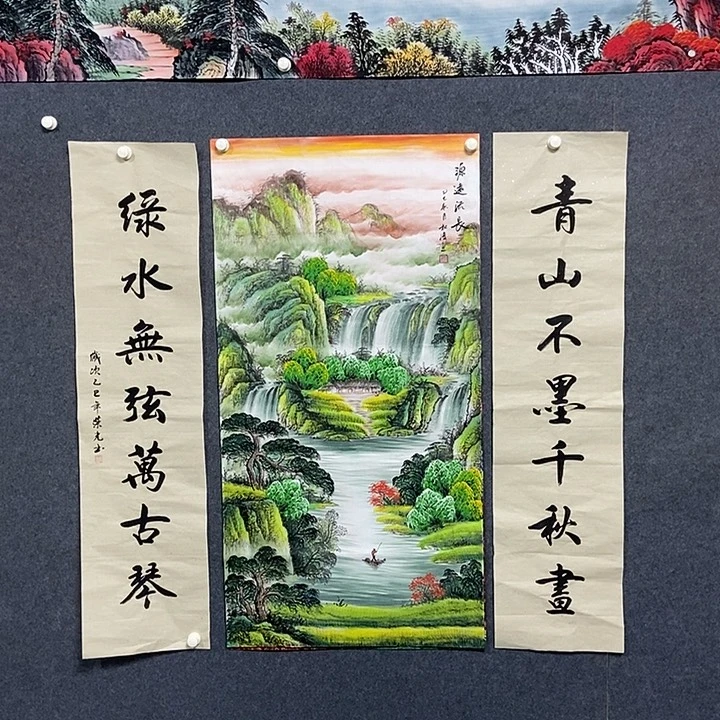 青山不墨千秋畫
源遠流長
綠水無弦萬古琴
歲次乙巳年榮光書